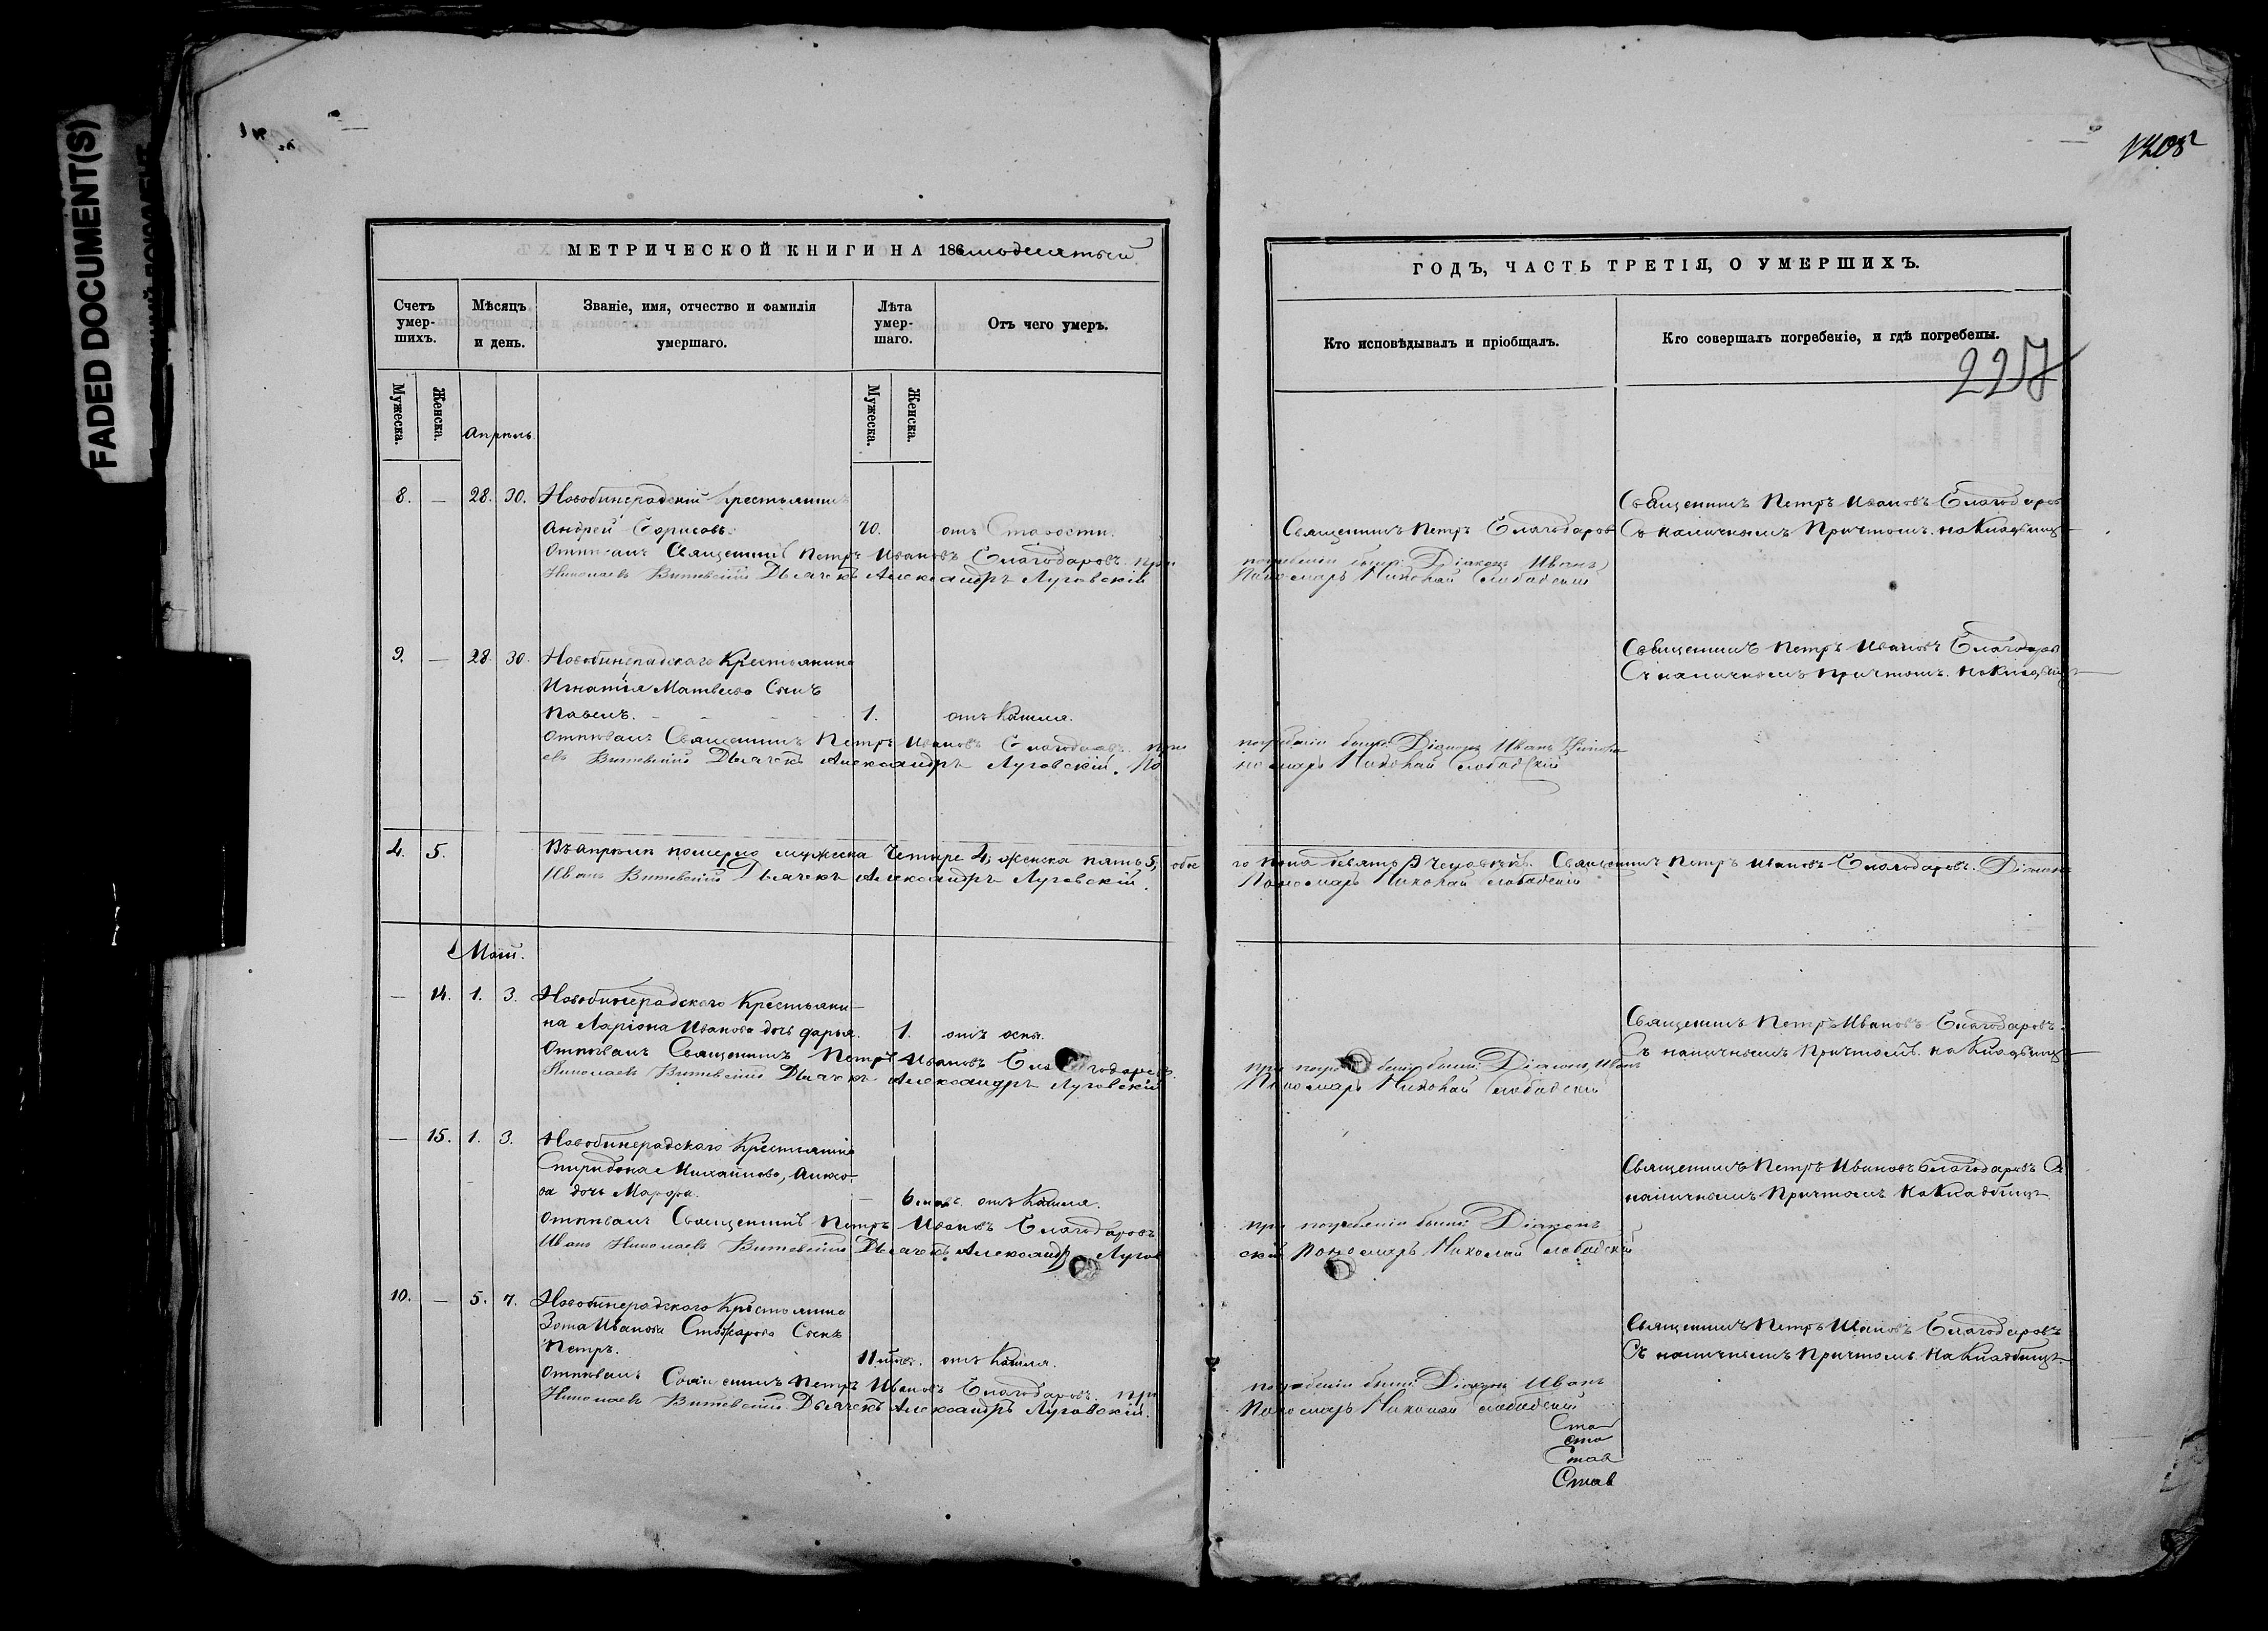 FADED DOCUMENT(S)
МЕТРИЧЕСКОЙ КНИГИ НА 186
Счетъ умер-шихъ.
Мѣсяцъ и день.
Званіе, имя, отчество и фамилія умершаго.
Лѣта умер-шаго.
Отъ чего умеръ.
Мужеска.
Женска.
Мужеска.
Женска.
Апрель
8. — 28. 30. Новобинерадскій крестьянинъ
Андрей Борисовъ. 70. отъ Старости.
Отпѣвалъ Священникъ Петръ Ивановъ Благодаровъ. при
Николаевъ Дьячекъ Александръ Луговскій
9. — 28. 30. Новобинерадскаго Крестьянина
Игнатія Матвѣева Сынъ
Павелъ. 1. отъ Кашля.
Отпѣвалъ Священникъ Петръ Ивановъ Благодаровъ. при
евъ Дьячекъ Александръ Луговскій. По
4. 5. Въ апрѣлѣ померло мужеска четыре 4, женска пять 5, обое
Иванъ Дьячекъ Александръ Луговскій.
Май.
— 14. 1. 3. Новобинерадскаго Крестьяни-
на Ларіона Иванова дочь Дарья. 1. отъ оспы.
Отпѣвалъ Священникъ Петръ Ивановъ Благодаровъ.
Николаевъ Дьячекъ Александръ Луговскій
— 15. 1. 3. Новобинерадскаго Крестьянина
Спиридона Михайлова,
ва дочь Марфа. — 6 мѣс. отъ Кашля.
Отпѣвалъ Священникъ Петръ Ивановъ Благодаровъ
Иванъ Николаевъ Дьячекъ Александръ Лугов
10. — 5. 7. Новобинерадскаго Крестьянина
Зота Иванова Сынъ
Петръ. 11 мѣс. отъ Кашля.
Отпѣвалъ Священникъ Петръ Ивановъ Благодаровъ. при
Николаевъ Дьячекъ Александръ Луговскій.
ГОДЪ, ЧАСТЬ ТРЕТІЯ, О УМЕРШИХЪ.
Кто исповѣдывалъ и пріобщалъ.
Кто совершалъ погребеніе, и гдѣ погребены.
227
Священникъ Петръ Ивановъ Благодаровъ
Священникъ Петръ Благодаровъ Съ наличнымъ Причтомъ. на Кладбищѣ
погребеніи были: Діаконъ Иванъ
Пономарь Николай Слободскій
Священникъ Петръ Ивановъ Благодаровъ
Съ наличнымъ причтомъ. на Кладбищѣ
погребеніи были: Діаконъ Иванъ Никола
номарь Николай Слободскій
го пола девять 9 человѣкъ. Священникъ Петръ Ивановъ Благодаровъ. Діаконъ
Пономарь Николай Слободскій
Священникъ Петръ Ивановъ Благодаровъ.
Съ наличнымъ Причтомъ. на Кладбищѣ
при погребеніи были: Діаконъ Иванъ
Пономарь Николай Слободскій
Священникъ Петръ Ивановъ Благодаровъ Съ
наличнымъ Причтомъ на Кладбищѣ
при погребеніи были: Діаконъ
скій Пономарь Николай Слободскій
Священникъ Петръ Ивановъ Благодаровъ
Съ наличнымъ Причтомъ на Кладбищѣ
погребеніи были: Діаконъ Иванъ
Пономарь Николай Слободскій
Ста
ста
Став
Став